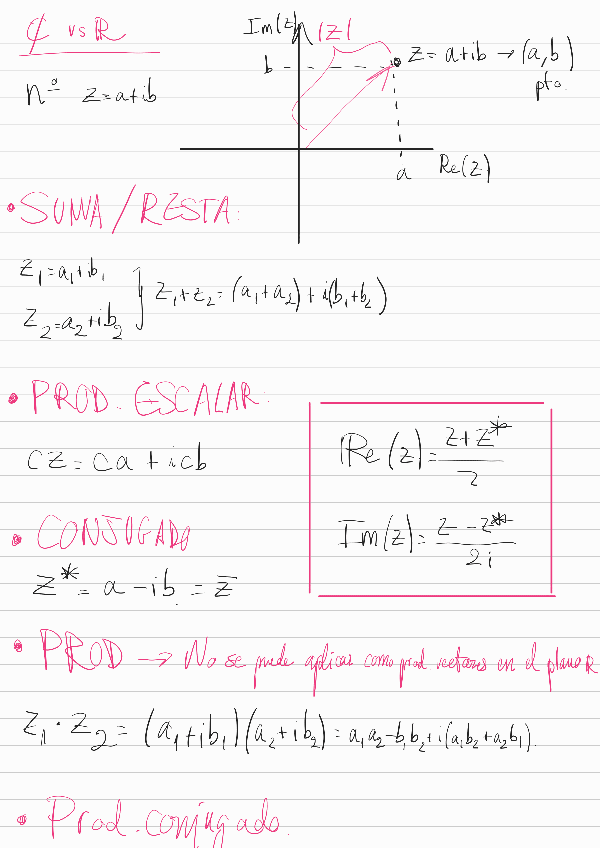 ₵ vs ℝ
Im(z)
|z|
b
z = a+ib → (a,b)
pto.
nº z = a+ib
a
Re(z)
• SUMA / RESTA:
z₁ = a₁+ib₁
z₂ = a₂+ib₂
z₁+z₂ = (a₁+a₂) + i(b₁+b₂)
• PROD. ESCALAR:
cz = ca + icb
Re(z) = (z+z*)/2
Im(z) = (z-z*)/2i
• CONJUGADO
z* = a - ib = z̅
• PROD → No se puede aplicar como prod vectores en el plano R
z₁ · z₂ = (a₁+ib₁)(a₂+ib₂) = a₁a₂-b₁b₂+i(a₁b₂+a₂b₁).
• Prod. conjugado.